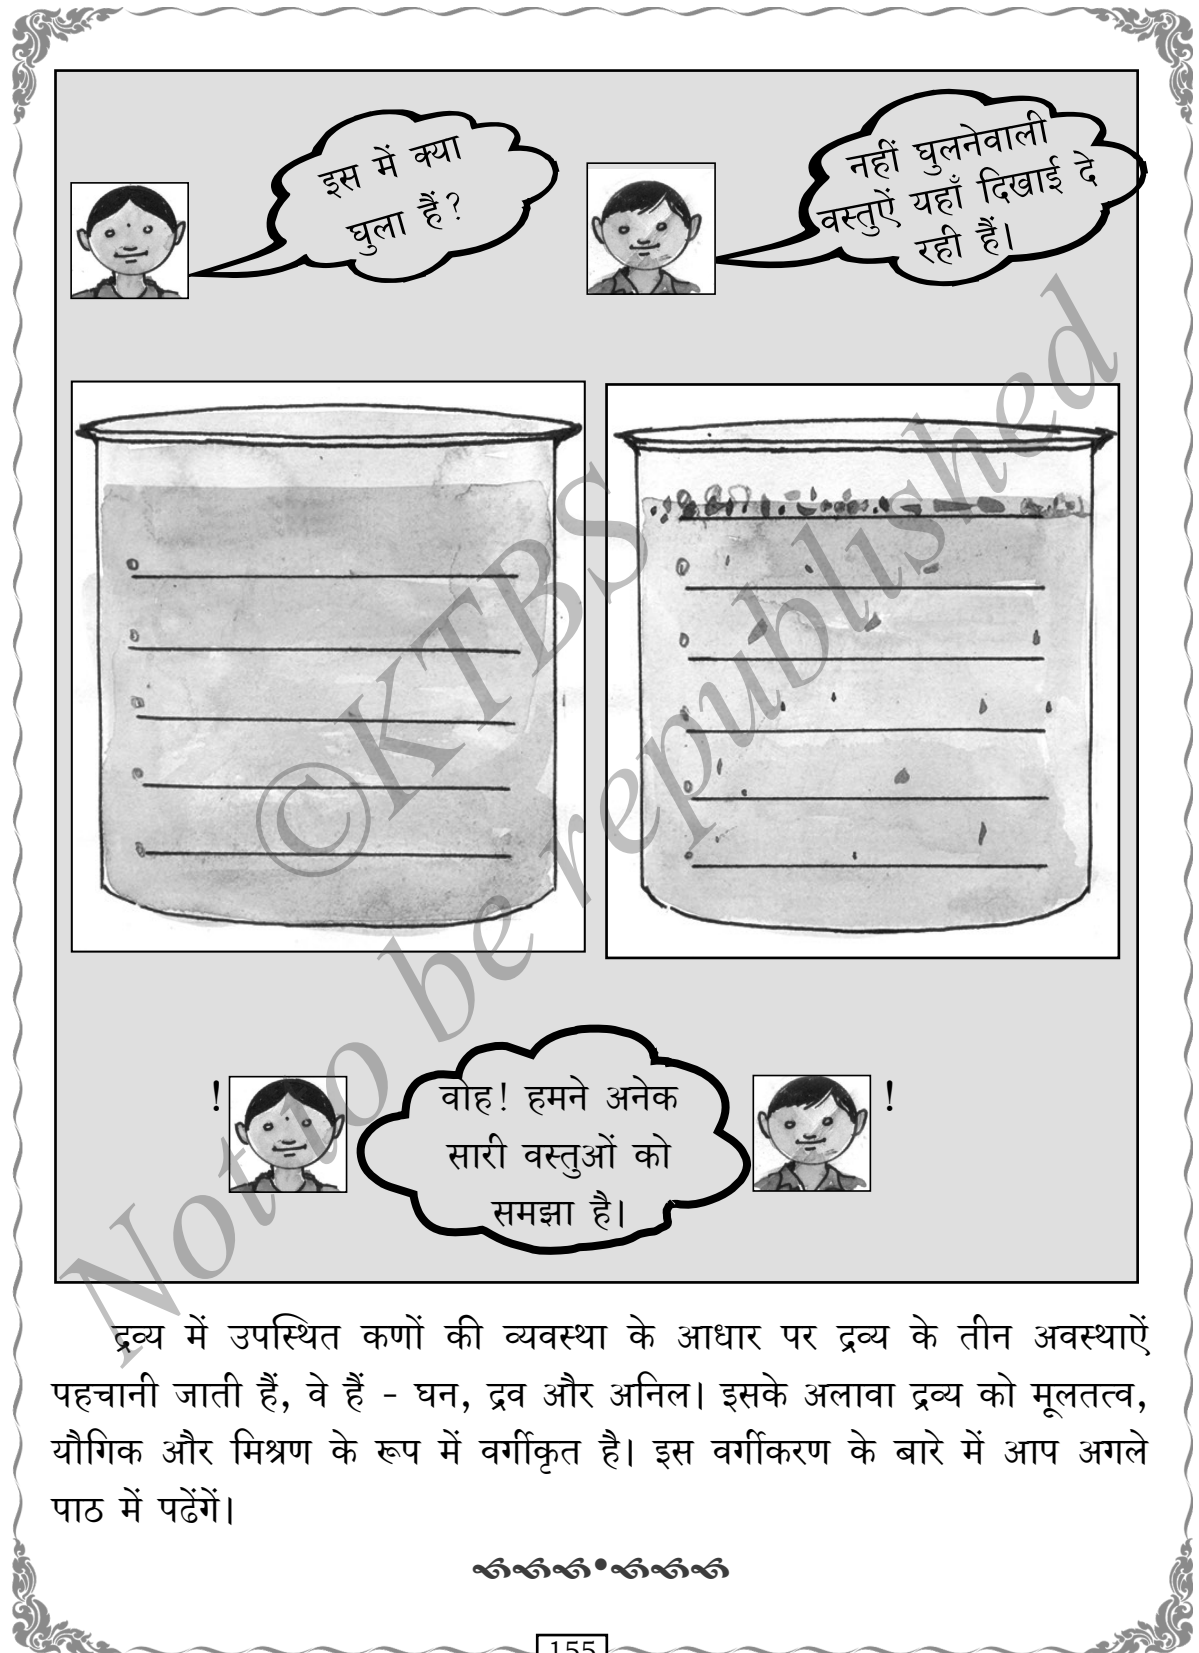 इस में क्या
घुला हैं?
नहीं घुलनेवाली
वस्तुऐं यहाँ दिखाई दे
रही हैं।
©KTBS
Not to be republished
! !
वोह! हमने अनेक
सारी वस्तुओं को
समझा है।
द्रव्य में उपस्थित कणों की व्यवस्था के आधार पर द्रव्य के तीन अवस्थाऐं
पहचानी जाती हैं, वे हैं - घन, द्रव और अनिल। इसके अलावा द्रव्य को मूलतत्व,
यौगिक और मिश्रण के रूप में वर्गीकृत है। इस वर्गीकरण के बारे में आप अगले
पाठ में पढेंगें।
155